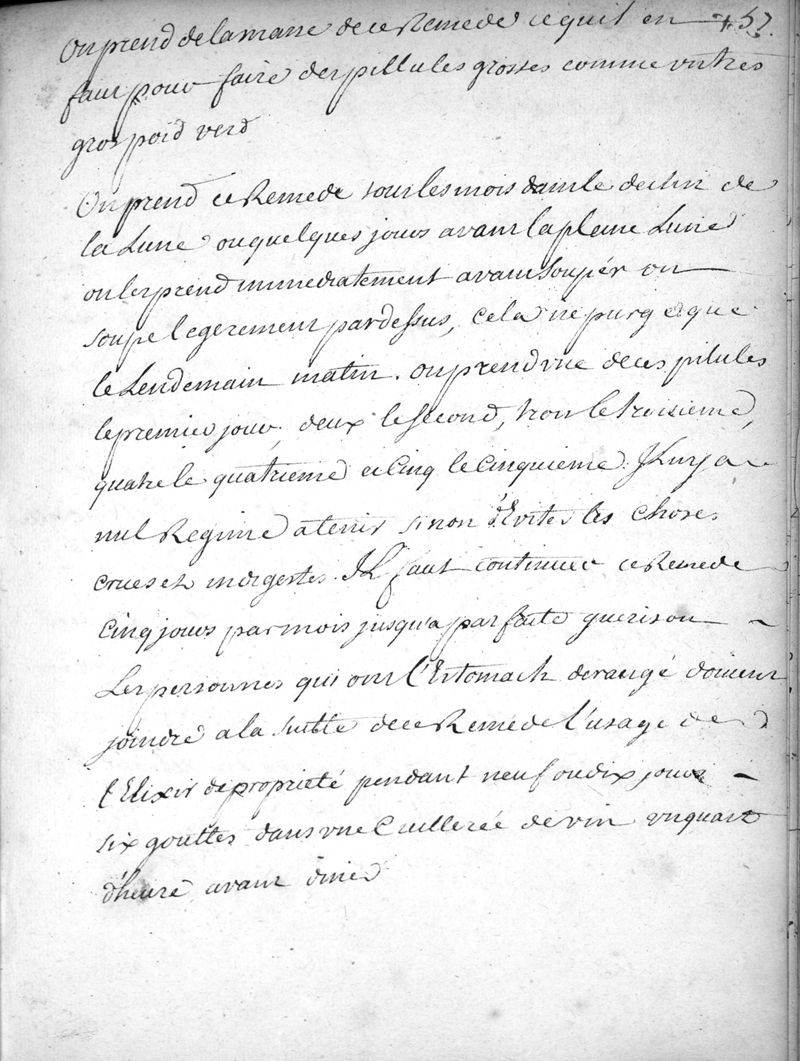 On prend de la masse de ce Remede ce quil en 457.
faut pour faire des pillules grosses comme un tres
gros poid verd
On prend ce Remede tous les mois dans le declin de
la Lune ou quelques jours avant la pleine Lune
on les prend immediatement avant souper on
soupe legerement par dessus, cela ne purge que
le Lendemain matin. on prend une de ces pilules
le premier jour, deux le second, trois le troisieme,
quatre le quatrieme et Cinq le Cinquieme. Il n'y a
nul Regime a tenir sinon d'Eviter les choses
crues et indigestes. Il faut continuer ce Remede
Cinq jours par mois jusqu'a parfaite guerison
Les personnes qui ont l'Estomach derangé doivent
joindre a la suitte de ce Remede l'usage de
l'Elixir de proprieté pendant neuf ou dix jours
six gouttes dans une Cuillerée de vin un quart
d'heure avant diner